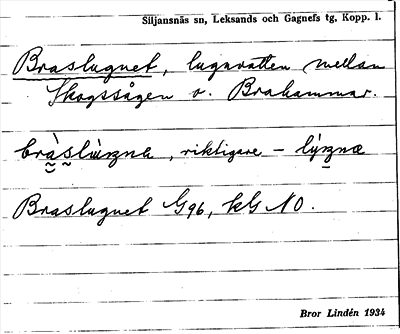 Siljansnäs sn, Leksands och Gagnefs tg, Kopp. l.
Braslugnet, lugnvatten mellan
Skogssågen o. Brahammar.
, riktigare –
Braslugnet G96, kG NO.
Bror Lindén 1934